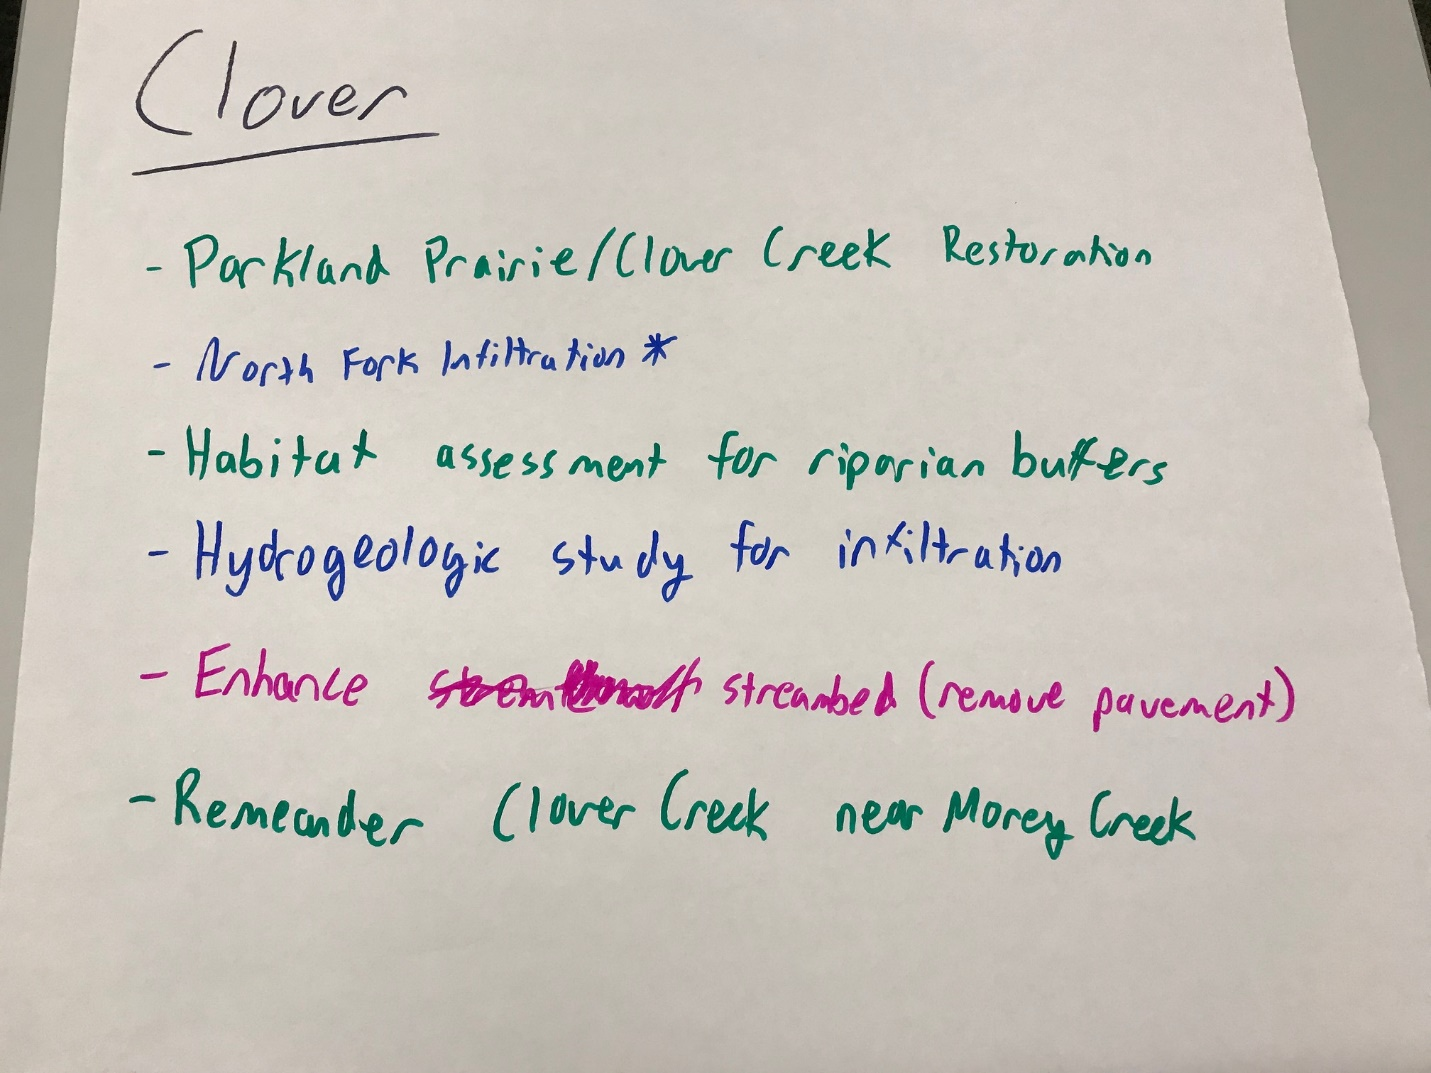 Clover
- Parkland Prairie/Clover Creek Restoration
- North Fork Infiltration *
- Habitat assessment for riparian buffers
- Hydrogeologic study for infiltration
- Enhance streambed (remove pavement)
- Remeander Clover Creek near Morey Creek